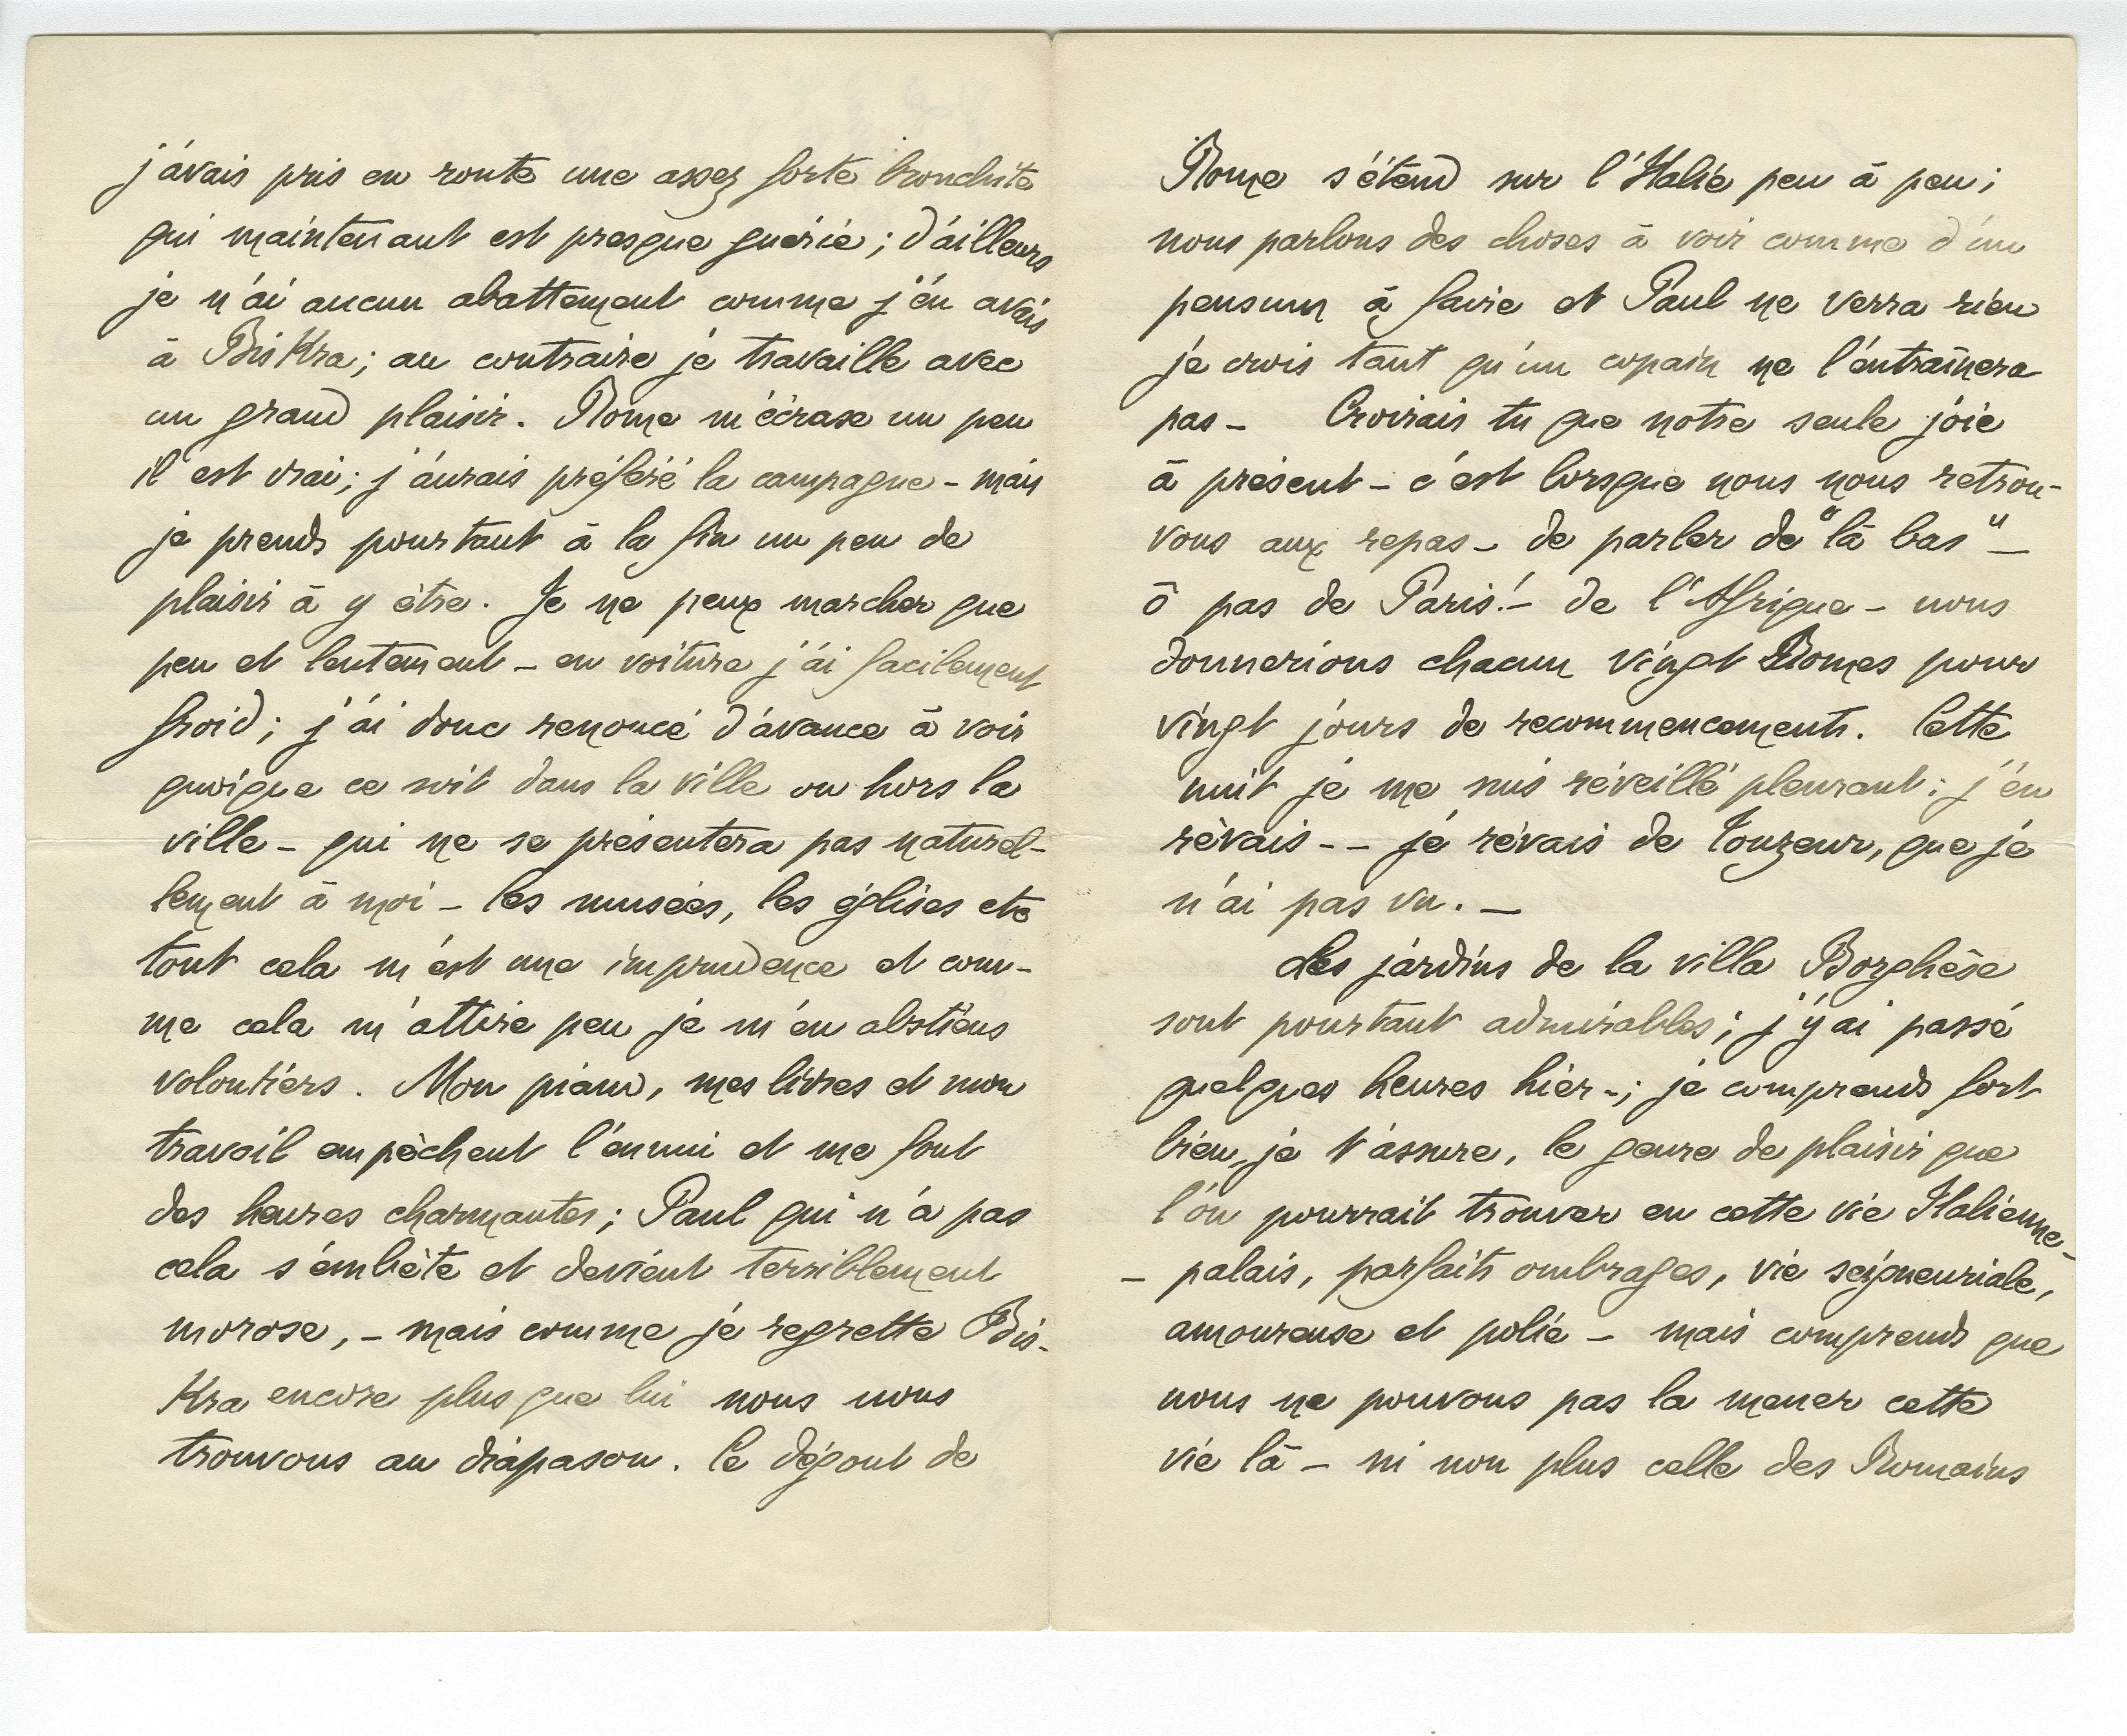 j'avais pris en route une assez forte bronchite
qui maintenant est presque guérie ; d'ailleurs
je n'ai aucun abattement comme j'en avais
à Biskra ; au contraire je travaille avec
un grand plaisir. Rome m'écrase un peu
il est vrai ; j'aurais préféré la campagne - mais
je prends pourtant à la fin un peu de
plaisir à y être. Je ne peux marcher que
peu et lentement - en voiture j'ai facilement
froid ; j'ai donc renoncé d'avance à voir
quoique ce soit dans la ville ou hors la
ville - qui ne se présentera pas naturel-
lement à moi - les musées, les églises etc
tout cela m'est une imprudence et com-
me cela m'attire peu je m'en abstiens
volontiers. Mon piano, mes livres et mon
travail empêchent l'ennui et me font
des heures charmantes ; Paul qui n'a pas
cela s'embête et devient terriblement
morose, - mais comme je regrette Bis-
kra encore plus que lui nous nous
trouvons au diapason. Le dégout de
Rome s'étend sur l'Italie peu à peu ;
nous parlons des choses à voir comme d'un
pensum à faire et Paul ne verra rien
je crois tant qu'un copain ne l'entraînera
pas - Croirais tu que notre seule joie
à présent - c'est lorsque nous nous retrou-
vons aux repas - de parler de "là bas" -
ô pas de Paris ! - de l'Afrique - nous
donnerions chacun vingt Romes pour
vingt jours de recommencements. Cette
nuit je me suis réveillé pleurant : j'en
rêvais - - je rêvais de Touzeur, que je
n'ai pas vu. -
Les jardins de la villa Borghèse
sont pourtant admirables ; j'y ai passé
quelques heures hier - ; je comprends fort
bien, je t'assure, le genre de plaisir que
l'on pourrait trouver en cette vie Italienne -
- palais, parfaits ombrages, vie seigneuriale,
amoureuse et polie - mais comprends que
nous ne pouvons pas la mener cette
vie là - ni non plus celle des Romains